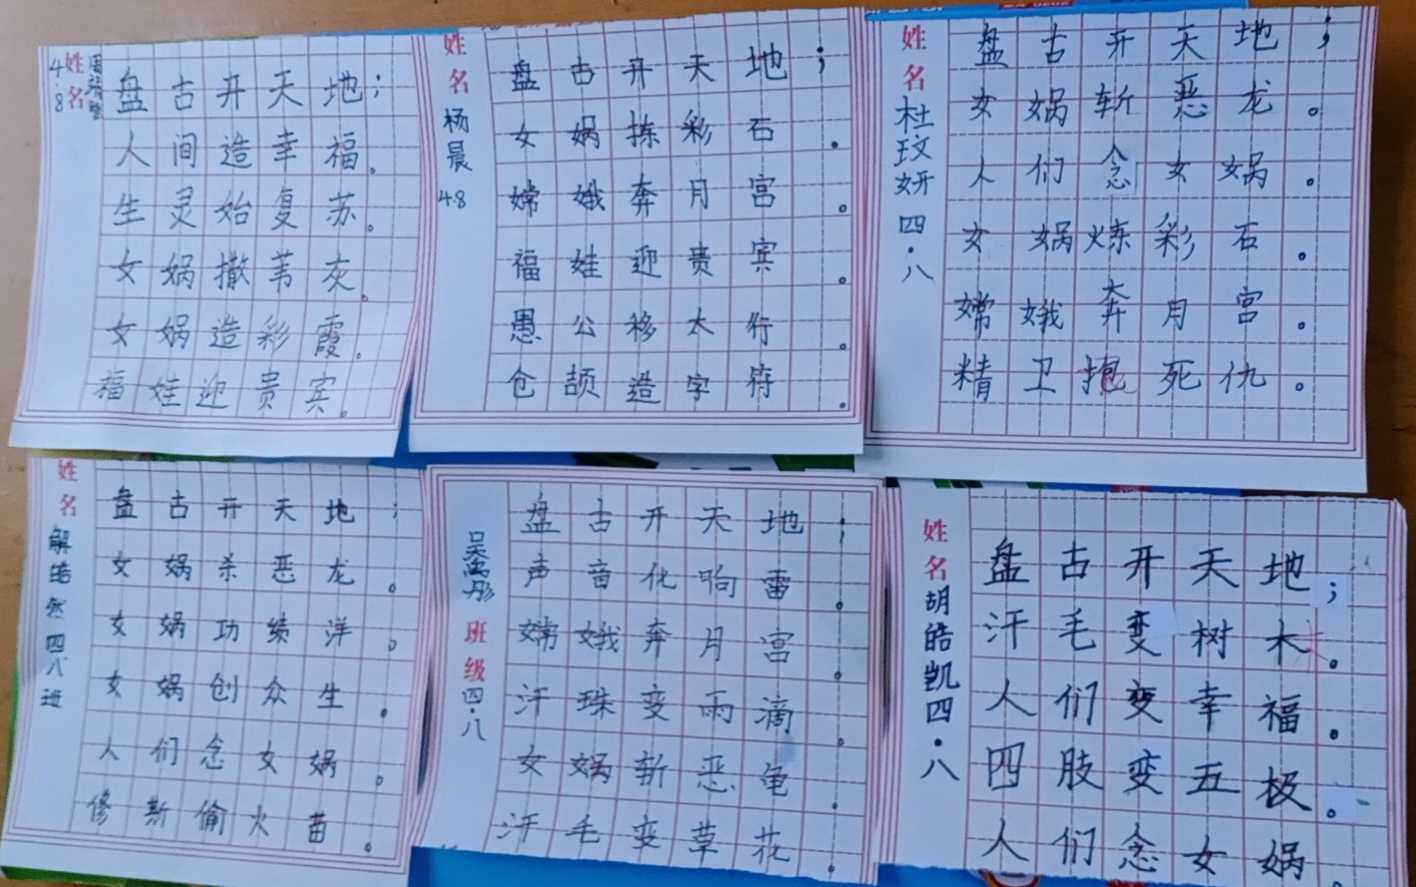 姓名
4.8
盘古开天地；
人间造幸福。
生灵始复苏。
女娲撒苇灰。
女娲造彩霞。
福娃迎贵宾。
姓名
杨晨
4.8
盘古开天地；
女娲拣彩石。
嫦娥奔月宫。
福娃迎贵宾。
愚公移太行。
仓颉造字符。
姓名
杜玟妍
四·八
盘古开天地；
女娲斩恶龙。
人们念女娲。
女娲炼彩石。
嫦娥奔月宫。
精卫抱死仇。
姓名
解皓然
四八班
盘古开天地；
女娲杀恶龙。
女娲功绩洋。
女娲创众生。
人们念女娲。
修斯偷火苗。
班级
四·八
盘古开天地；
声音化响雷。
嫦娥奔月宫。
汗珠变雨滴。
女娲斩恶龟。
汗毛变草花。
姓名
胡皓凯
四·八
盘古开天地；
汗毛变树木。
人们变幸福。
四肢变五极。
人们念女娲。